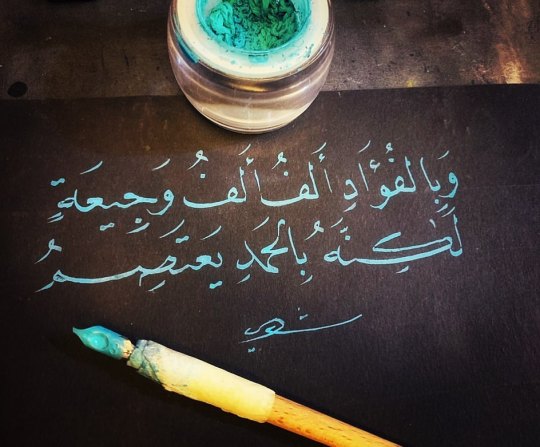 وَبِالفُؤَادِ أَلفُ أَلفُ وَجِيعَةٍ
لَكِنَّهُ بِالحَمدِ يَعتَصِمُ